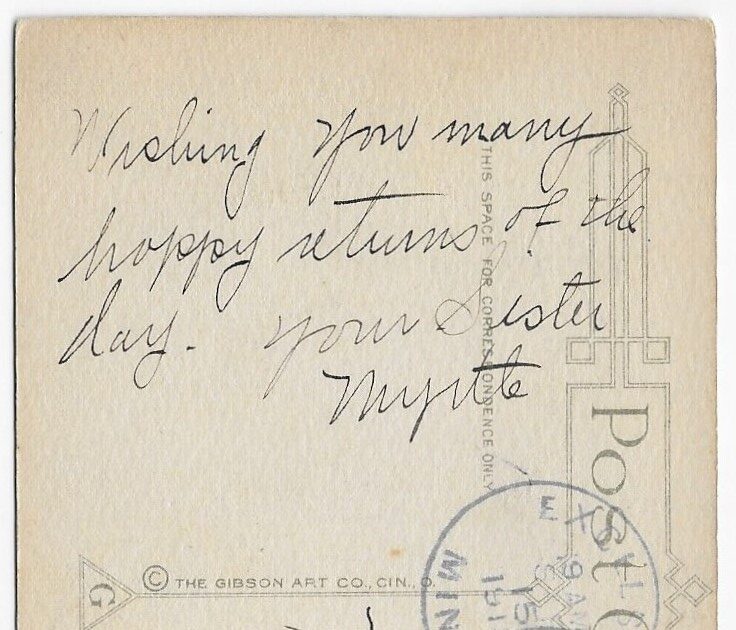 Wishing you many
happy returns of the
day. Your Sister
Myrtle
THIS SPACE FOR CORRESPONDENCE ONLY
POST
EXCELS
9 AM
15
191
MIN
G
© THE GIBSON ART CO., CIN., O.